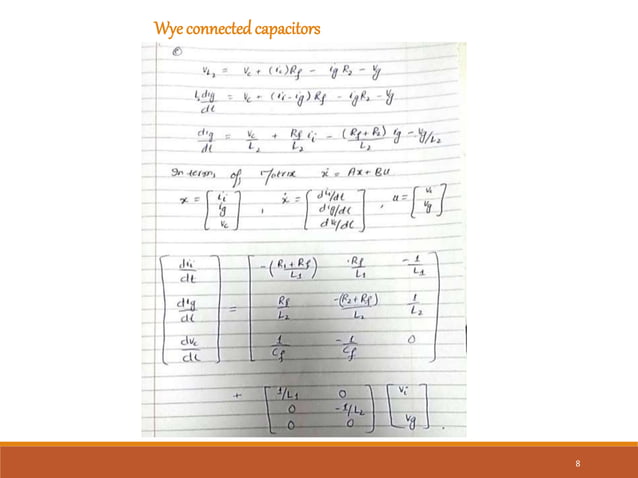 Wye connected capacitors
v_L₂ = v_c + (i_c)R_f − i_g R₂ − v_g
L₂ di_g/dt = v_c + (i_i − i_g) R_f − i_g R₂ − v_g
di_g/dt = v_c/L₂ + R_f/L₂ i_i − (R_f + R₂)/L₂ i_g − v_g/L₂
In terms of matrix ẋ = Ax + Bu
x = [i_i; i_g; v_c], ẋ = [di_i/dt; di_g/dt; dv_c/dt], u = [v_i; v_g]
[di_i/dt; di_g/dt; dv_c/dt] = [−(R₁ + R_f)/L₁ R_f/L₁ −1/L₁; R_f/L₂ −(R₂ + R_f)/L₂ 1/L₂; 1/C_f −1/C_f 0]
+ [1/L₁ 0; 0 −1/L₂; 0 0] [v_i; v_g].
8